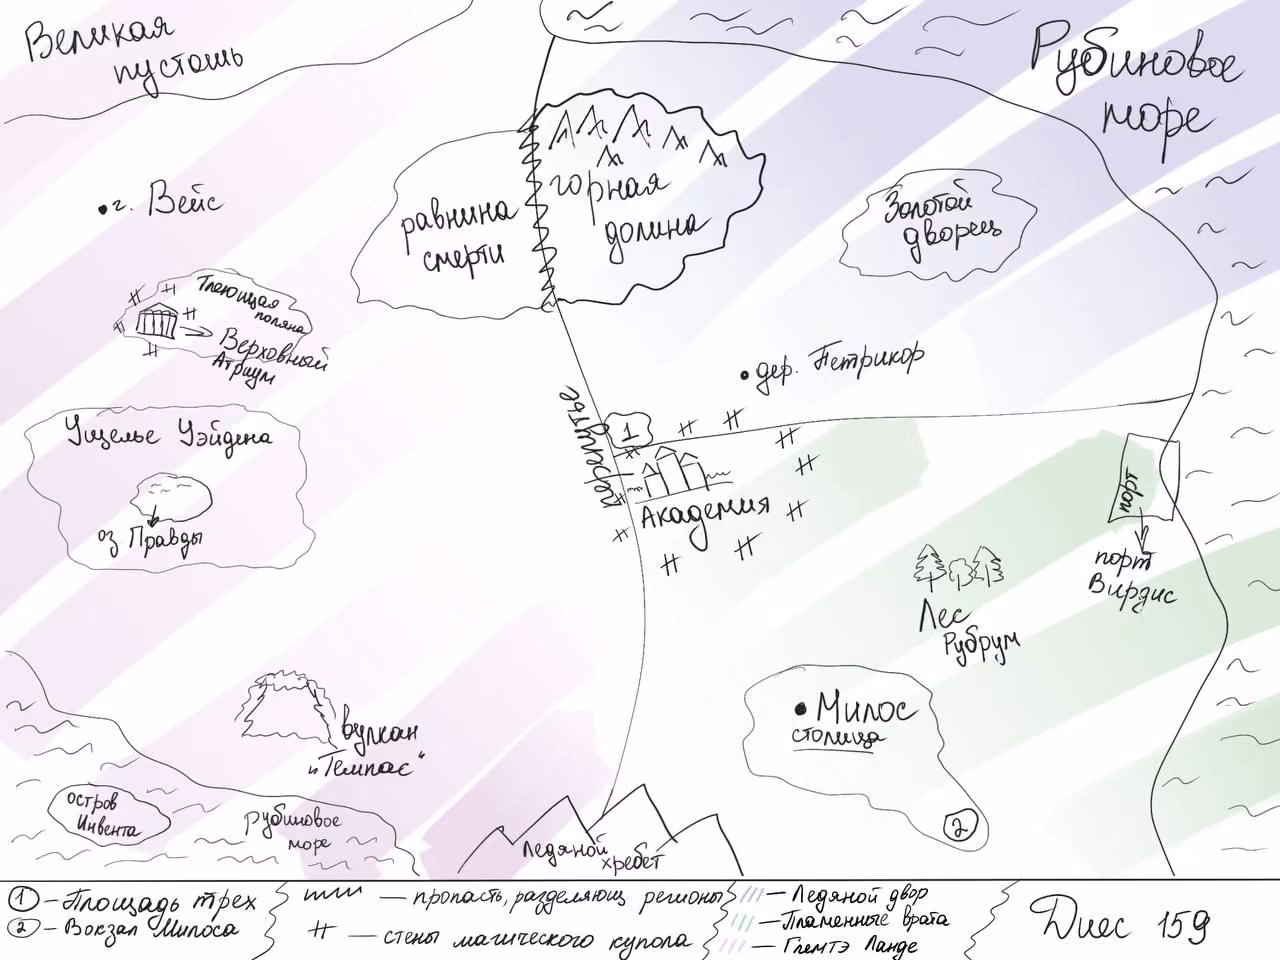 Великая
пустошь
Рубиновое
море
г. Вейс
равнина
смерти
горная
долина
Золотой
дворец
Тлеющая
поляна
Верховный
Атриум
дер. Петрикор
Ущелье Уэйдена
оз Правды
1
Академия
порт
порт
Вирдис
Лес
Рубрум
Милос
столица
2
вулкан
"Темпас"
остров
Инвента
Рубиновое
море
Ледяной
хребет
1 - Площадь трех
2 - Вокзал Милоса
— пропасть, разделяющ регионы
# — стены магического купола
— Ледяной двор
— Пламенные врата
— Глемтэ Ланде
Диес 159